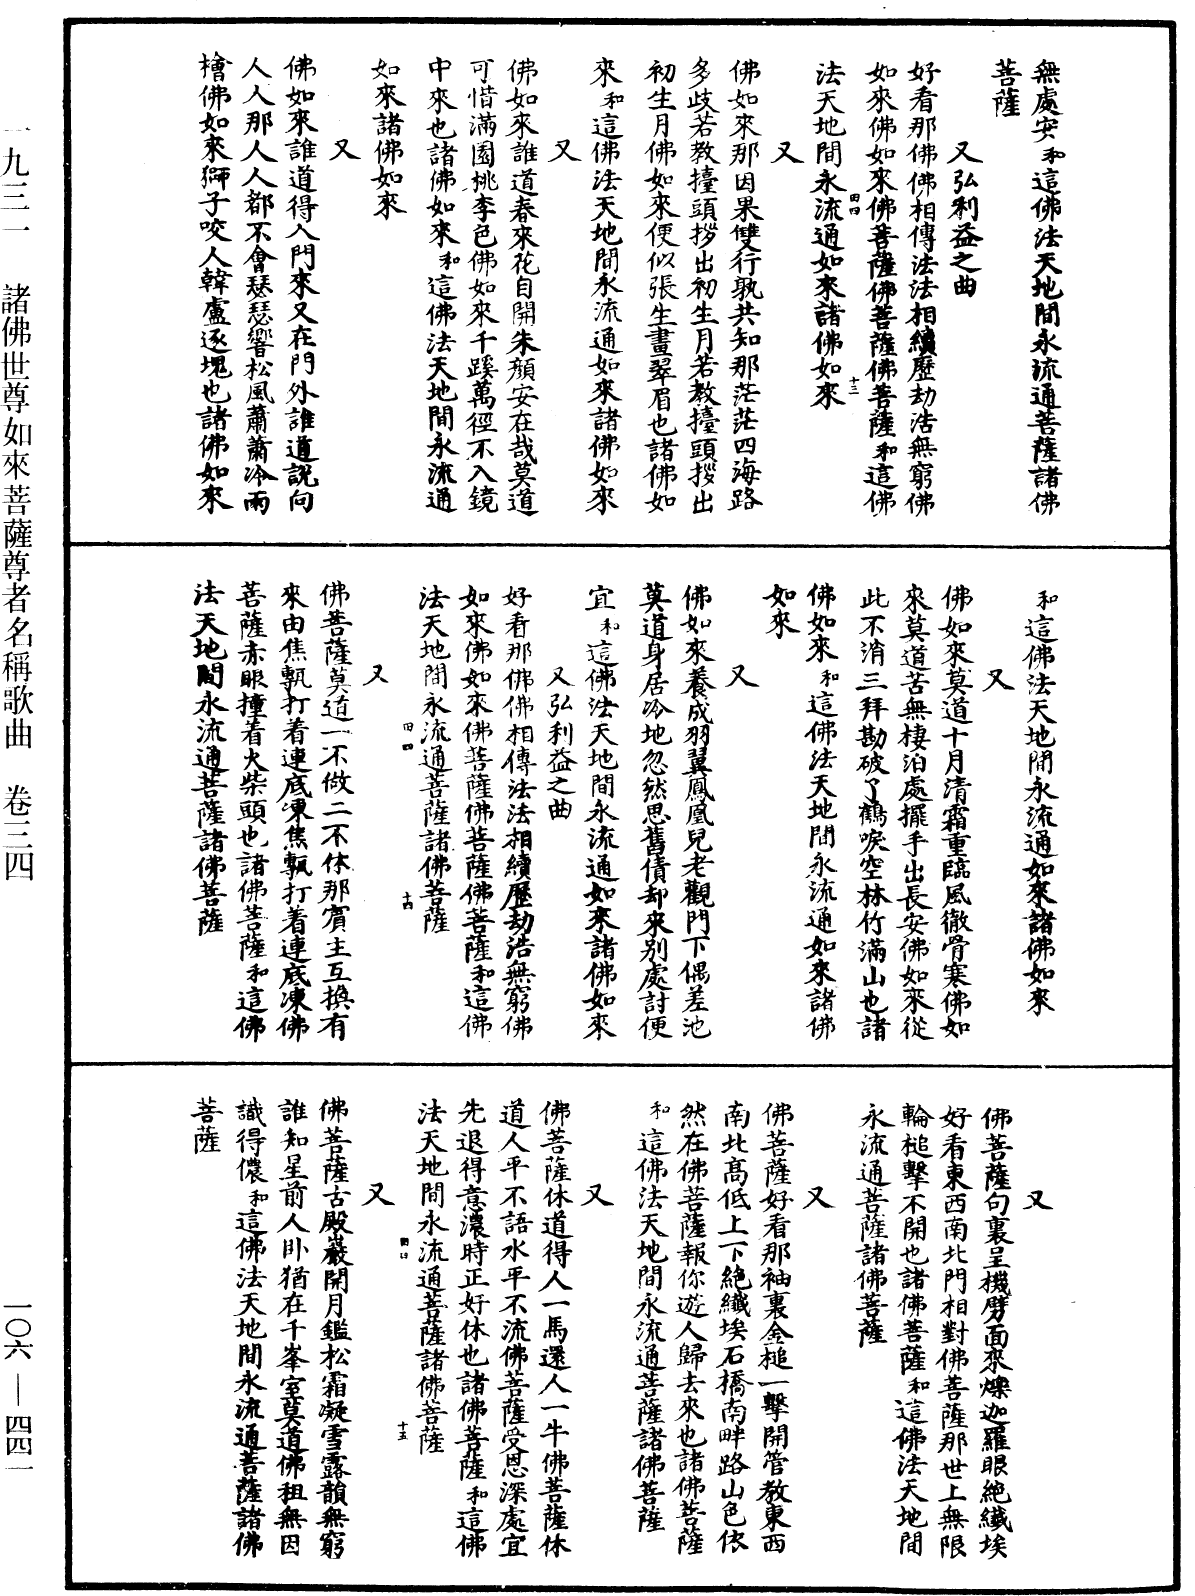 無處安和這佛法天地間永流通菩薩諸佛
菩薩
又弘利益之曲
好看那佛佛相傳法法相續歷劫浩無窮佛
如來佛如來佛菩薩佛菩薩佛菩薩和這佛
法天地間永流通如來諸佛如來
又
佛如來那因果雙行孰共知那茫茫四海路
多歧若教擡頭拶出初生月若教擡頭拶出
初生月佛如來便似張生畫翠眉也諸佛如
來和這佛法天地間永流通如來諸佛如來
又
佛如來誰道春來花自開朱顏安在哉莫道
可惜滿園桃李色佛如來千蹊萬徑不入鏡
中來也諸佛如來和這佛法天地間永流通
如來諸佛如來
又
佛如來誰道得入門來又在門外誰道説向
人人那人人都不會瑟瑟響松風蕭蕭冷雨
檜佛如來獅子咬人韓盧逐塊也諸佛如來
和這佛法天地間永流通如來諸佛如來
又
佛如來莫道十月清霜重臨風徹骨寒佛如
來莫道苦無棲泊處擺手出長安佛如來從
此不消三拜勘破了鶴唳空林竹滿山也諸
佛如來和這佛法天地間永流通如來諸佛
如來
又
佛如來養成羽翼鳳凰兒老觀門下偶差池
莫道身居冷地忽然思舊債却來别處討便
宜和這佛法天地間永流通如來諸佛如來
又弘利益之曲
好看那佛佛相傳法法相續歷劫浩無窮佛
如來佛如來佛菩薩佛菩薩佛菩薩和這佛
法天地間永流通菩薩諸佛菩薩
又
佛菩薩莫道一不做二不休那賓主互換有
來由焦甎打着連底凍焦甎打着連底凍佛
菩薩赤眼撞着火柴頭也諸佛菩薩和這佛
法天地間永流通菩薩諸佛菩薩
又
佛菩薩句裏呈機劈面來爍迦羅眼絶纖埃
好看東西南北門相對佛菩薩那世上無限
輪槌擊不開也諸佛菩薩和這佛法天地間
永流通菩薩諸佛菩薩
又
佛菩薩好看那袖裏金槌一擊開管教東西
南北高低上下絶纖埃石橋南畔路山色依
然在佛菩薩報你遊人歸去來也諸佛菩薩
和這佛法天地間永流通菩薩諸佛菩薩
又
佛菩薩休道得人一馬還人一牛佛菩薩休
道人平不語水平不流佛菩薩受恩深處宜
先退得意濃時正好休也諸佛菩薩和這佛
法天地間永流通菩薩諸佛菩薩
又
佛菩薩古殿巖開月鑑松霜凝雪露韻無窮
誰知星前人卧猶在千峯室莫道佛祖無因
識得儂和這佛法天地間永流通菩薩諸佛
菩薩
十三
十四
十五
一九三一 諸佛世尊如來菩薩尊者名稱歌曲 卷三四
一〇六—四四一